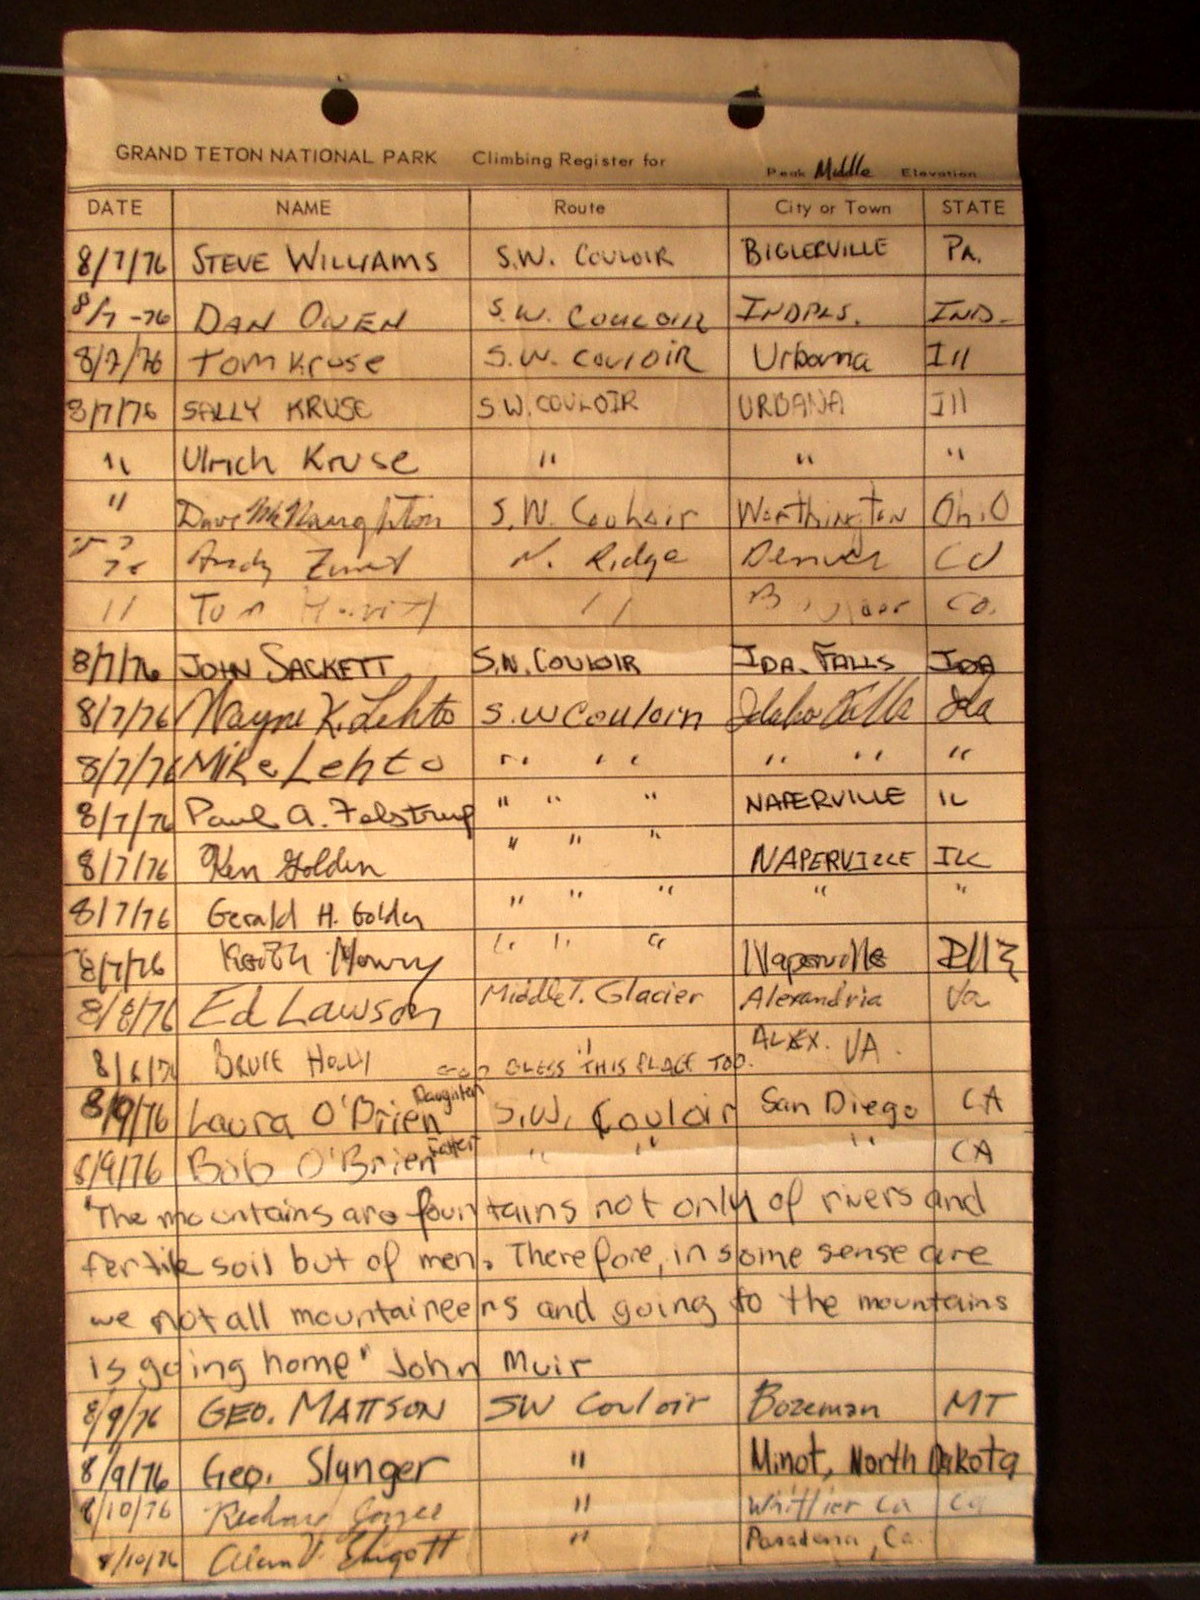 GRAND TETON NATIONAL PARK Climbing Register for Peak Middle Elevation
DATE NAME Route City or Town STATE
8/7/76 STEVE WILLIAMS S.W. COULOIR BIGLERVILLE PA.
8/7-76 DAN OWEN S.W. COULOIR INDPLS. IND.
8/7/76 Tom Kruse S.W. COULOIR Urbana Ill
8/7/76 SALLY KRUSE S.W. COULOIR URBANA Ill
" Ulrich Kruse " " "
" Dave McNaughton S.W. Couloir Worthington Ohio
Andy N. Ridge Denver CO
" Tom " Co.
8/7/76 JOHN SACKETT S.W. COULOIR IDA. FALLS IDA
8/7/76 Wayne K. Lehto S.W Couloir Idaho Falls Ida
8/7/76 Mike Lehto " " " " "
8/7/76 Paul A. Felstrup " " " NAPERVILLE IL
8/7/76 Ken Golden " " " NAPERVILLE ILL
8/7/76 Gerald H. Golden " " " " "
8/7/76 Keith Mowry " " " Naperville Ill
8/8/76 Ed Lawson Middle T. Glacier Alexandria Va
BRUCE HOLLY " ALEX. VA.
GOD BLESS THIS PLACE TOO.
8/9/76 Laura O'Brien Daughter S.W. Couloir San Diego CA
8/9/76 Bob O'Brien Father " " " CA
"The mountains are fountains not only of rivers and
fertile soil but of men. Therefore, in some sense are
we not all mountaineers and going to the mountains
is going home" John Muir
8/9/76 GEO. MATTSON SW Couloir Bozeman MT
8/9/76 Geo. Slynger " Minot, North Dakota
8/10/76 " Whittier Ca Ca
8/10/76 Alan V. " Pasadena, Ca.